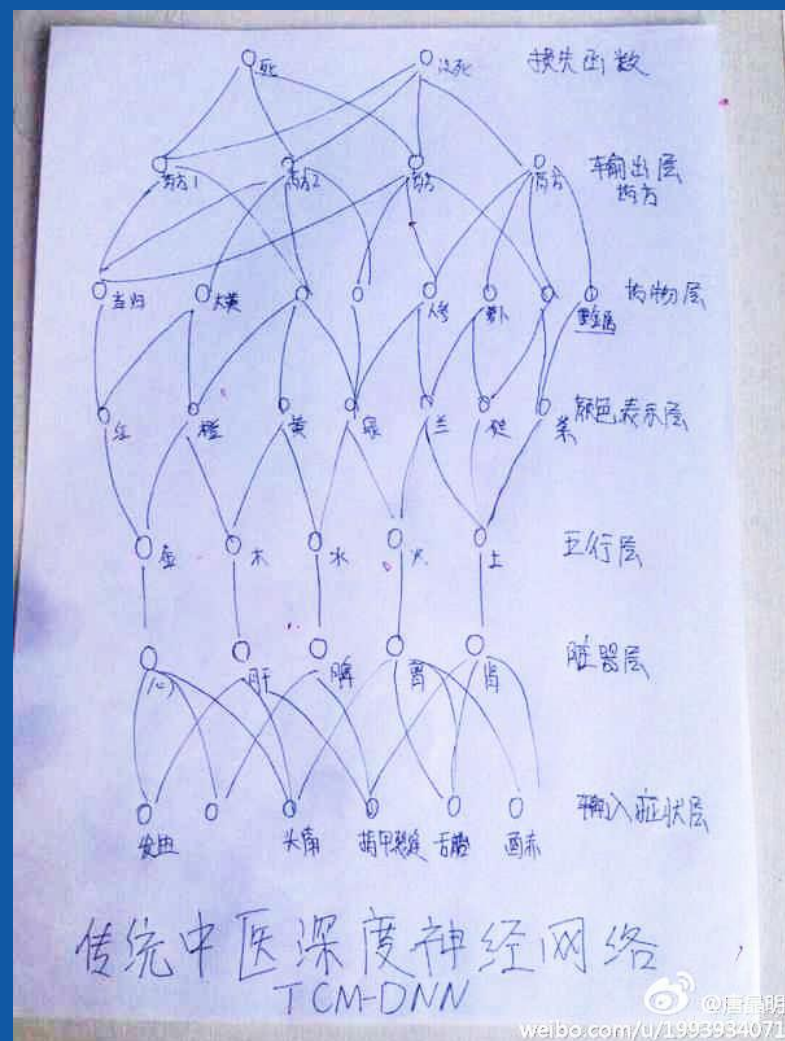 死 没死 损失函数
药方1 药方2 药方 药方 输出层
药方
当归 大黄 人参 萝卜 重金属 药物层
红 橙 黄 绿 兰 靛 紫 颜色表示层
金 木 水 火 土 五行层
心 肝 脾 胃 肾 脏器层
输入症状层
发热 头痛 指甲裂缝 舌苔 面赤
传统中医深度神经网络
TCM-DNN
@唐晶明
weibo.com/u/1993934071